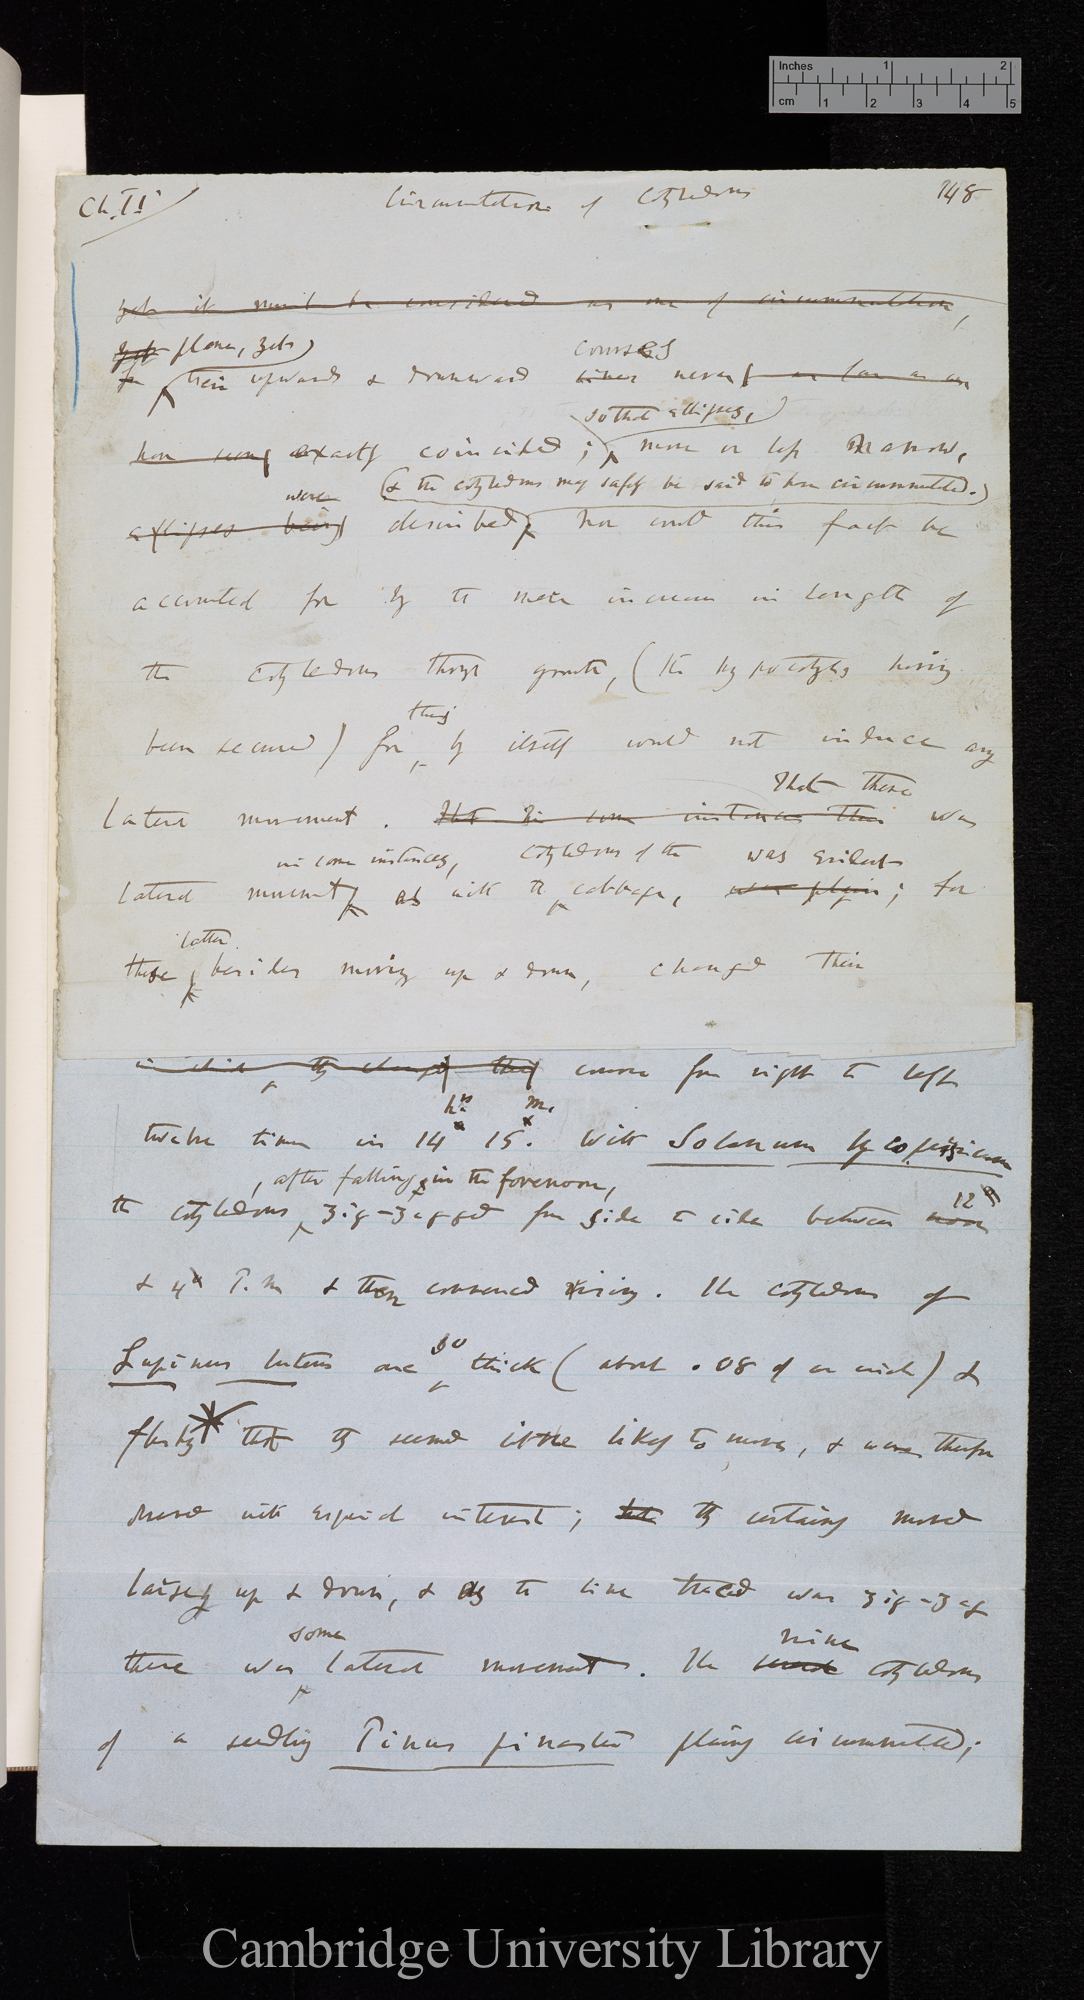 Inches 1 2
cm 1 2 3 4 5
Ch. II Circumnutation of Cotyledons 148
yet it must be considered as one of circumnutation,
yet plane, yet
for their upwards & downward lines courses never
so that ellipses,
how ever exactly coincided; more or less narrow,
were (& the cotyledons may safely be said to have circumnutated.)
ellipses being described, nor could this fact be
accounted for by the mere increase in length of
the cotyledons through growth, (the hypocotyls having
this
been secured) for by itself would not induce any
that there
lateral movement. That in some instances there was
in some instances, cotyledons of the was evident
lateral movement as with the cabbage, was plain; for
latter
these besides moving up & down, changed their
they changed their course from right to left
hrs m.
twelve times in 14 15. With Solanum lycopersicum
, after falling in the forenoon,
the cotyledons zig-zagged from side to side between noon 12 h
& 4h P.m & then commenced rising. The cotyledons of
so
Lupinus luteus are thick (about .08 of an inch) &
fleshy that they seemed little likely to move, & were therefore
observed with especial interest; but they certainly moved
largely up & down, & as the line traced was zig-zag
some nine
there was lateral movement. The cotyledons
of a seedling Pinus pinaster plainly circumnutated;
Cambridge University Library